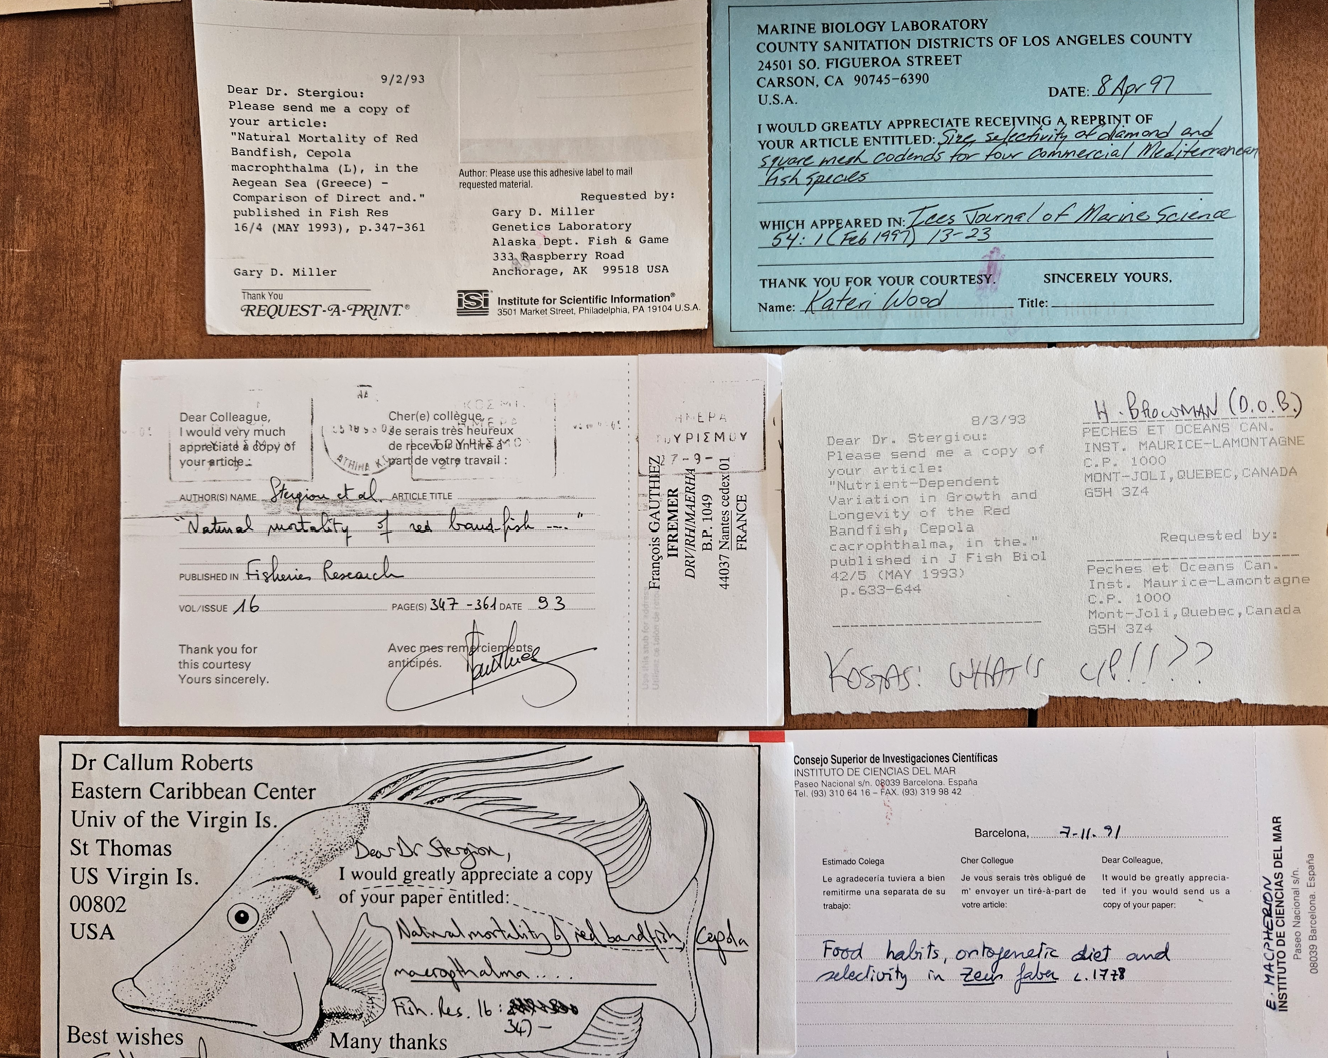 9/2/93
Dear Dr. Stergiou:
Please send me a copy of
your article:
"Natural Mortality of Red
Bandfish, Cepola
macrophthalma (L), in the
Aegean Sea (Greece) -
Comparison of Direct and."
published in Fish Res
16/4 (MAY 1993), p.347-361
Gary D. Miller
Thank You
REQUEST-A-PRINT.®
Author: Please use this adhesive label to mail
requested material.
Requested by:
Gary D. Miller
Genetics Laboratory
Alaska Dept. Fish & Game
333 Raspberry Road
Anchorage, AK 99518 USA
iSi Institute for Scientific Information®
3501 Market Street, Philadelphia, PA 19104 U.S.A.
MARINE BIOLOGY LABORATORY
COUNTY SANITATION DISTRICTS OF LOS ANGELES COUNTY
24501 SO. FIGUEROA STREET
CARSON, CA 90745-6390
U.S.A.
DATE: 8 Apr 97
I WOULD GREATLY APPRECIATE RECEIVING A REPRINT OF
YOUR ARTICLE ENTITLED: Size selectivity of diamond and
square mesh codends for four commercial Mediterranean
fish species
WHICH APPEARED IN: Ices Journal of Marine Science
54:1 (Feb 1997) 13-23
THANK YOU FOR YOUR COURTESY. SINCERELY YOURS,
Name: Kateri Wood Title:
Dear Colleague,
I would very much
appreciate a copy of
your article:
Cher(e) collègue,
Je serais très heureux
de recevoir un tiré à
part de votre travail :
ΗΜΕΡΑ
ΤΟΥΡΙΣΜΟΥ
27-9-
AUTHOR(S) NAME Stergiou et al. ARTICLE TITLE
"Natural mortality of red band-fish ---."
PUBLISHED IN Fisheries Research
VOL/ISSUE 16 PAGE(S) 347-361 DATE 93
Thank you for
this courtesy
Yours sincerely.
Avec mes remerciements
anticipés.
François GAUTHIEZ
IFREMER
DRV/RH/MAERHA
B.P. 1049
44037 Nantes cedex 01
FRANCE
8/3/93
Dear Dr. Stergiou:
Please send me a copy of
your article:
"Nutrient-Dependent
Variation in Growth and
Longevity of the Red
Bandfish, Cepola
cacrophthalma, in the."
published in J Fish Biol
42/5 (MAY 1993)
p.633-644
H. BROWMAN (D.O.B.)
PECHES ET OCEANS CAN.
INST. MAURICE-LAMONTAGNE
C.P. 1000
MONT-JOLI,QUEBEC,CANADA
G5H 3Z4
Requested by:
Peches et Oceans Can.
Inst. Maurice-Lamontagne
C.P. 1000
Mont-Joli,Quebec,Canada
G5H 3Z4
KOSTAS: WHAT'S UP!!??
Dr Callum Roberts
Eastern Caribbean Center
Univ of the Virgin Is.
St Thomas
US Virgin Is.
00802
USA
Dear Dr Stergiou,
I would greatly appreciate a copy
of your paper entitled:
Natural mortality of red bandfish, Cepola
macropthalma ....
Fish. Res. 16:
347-
Best wishes
Many thanks
Consejo Superior de Investigaciones Científicas
INSTITUTO DE CIENCIAS DEL MAR
Paseo Nacional s/n. 08039 Barcelona. España
Tel. (93) 310 64 16 – FAX. (93) 319 98 42
Barcelona, 7-11-91
Estimado Colega
Le agradecería tuviera a bien
remitirme una separata de su
trabajo:
Cher Collegue
Je vous serais très obligué de
m' envoyer un tiré-à-part de
votre article:
Dear Colleague,
It would be greatly apprecia-
ted if you would send us a
copy of your paper:
Food habits, ontogenetic diet and
selectivity in Zeus faber L. 1778
E. MACPHERSON
INSTITUTO DE CIENCIAS DEL MAR
Paseo Nacional s/n.
08039 Barcelona. España